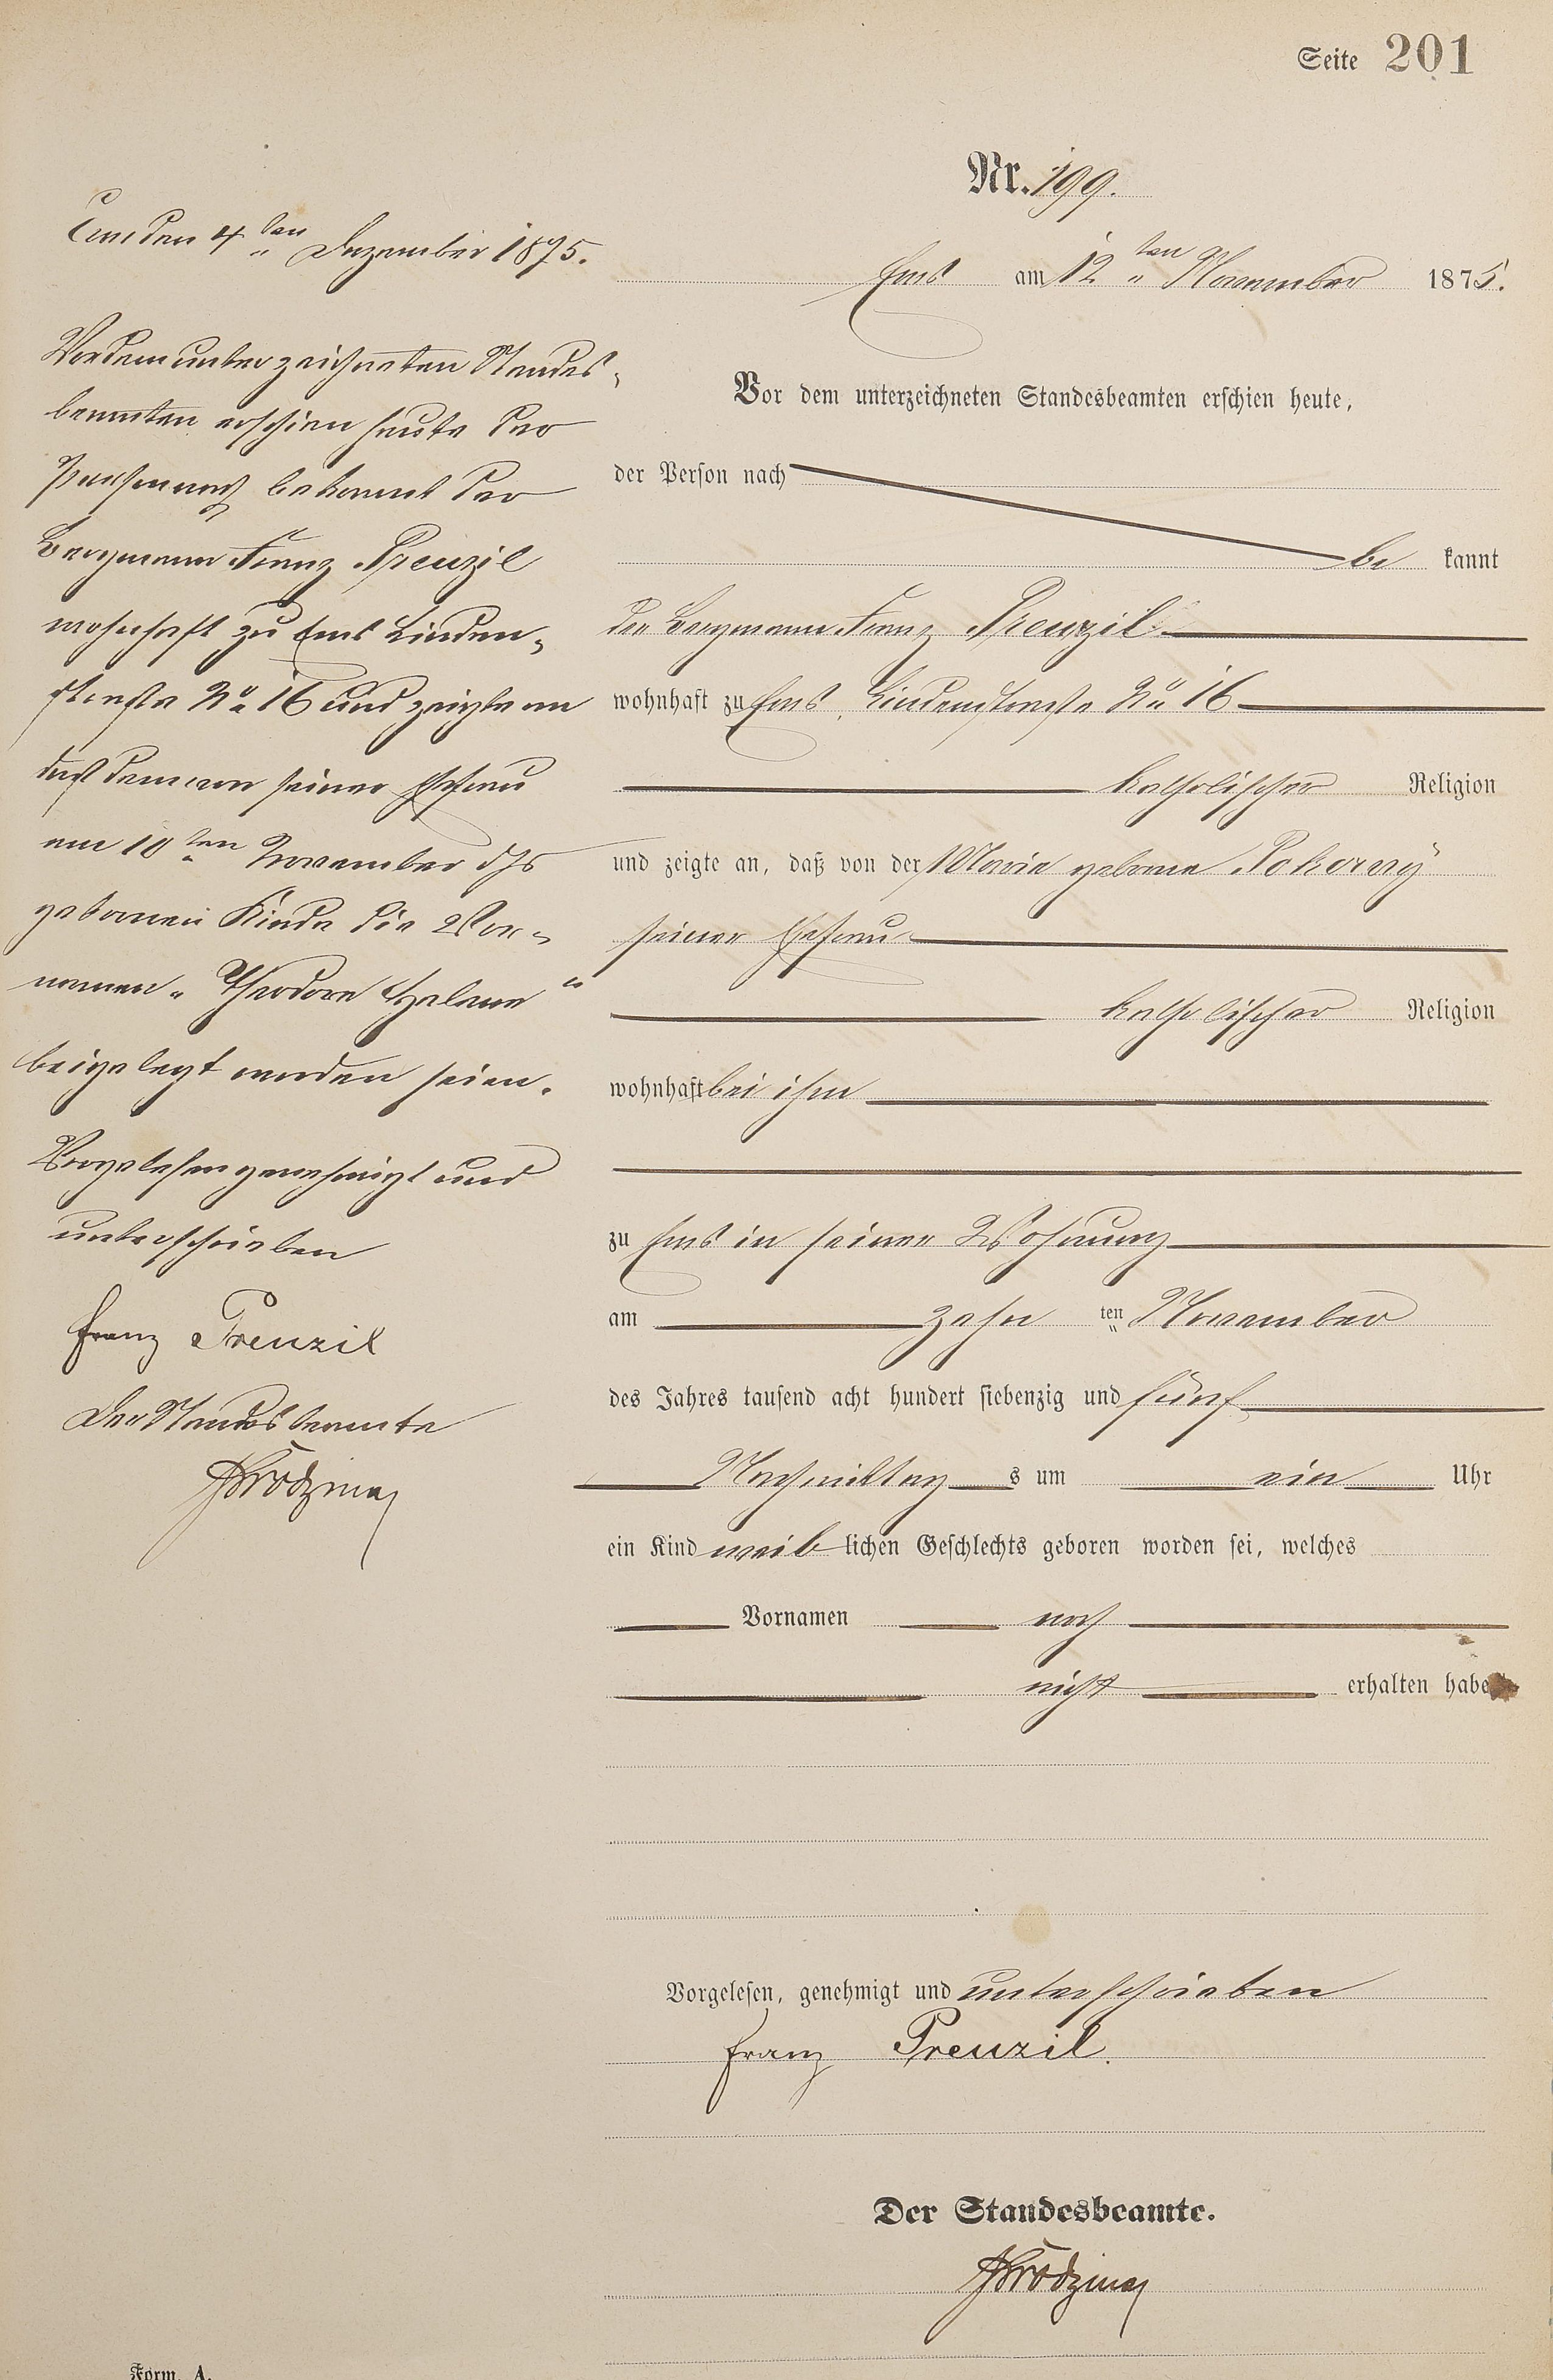 Seite 201
Nr. 199.
Ems am 12ten November 1875.
Vor dem unterzeichneten Standesbeamten erschien heute,
der Person nach
be kannt
der Bergmann Franz Prenzil
wohnhaft zu Ems, Lindenstraße No 16
katholischer Religion
und zeigte an, daß von der Maria geborne Pokorny
seiner Ehefrau
katholischer Religion
wohnhaft bei ihm
zu Ems in seiner Wohnung
am zehn ten November
des Jahres tausend acht hundert siebenzig und fünf
Nachmittag s um ein Uhr
ein Kind weib lichen Geschlechts geboren worden sei, welches
Vornamen noch
nicht erhalten habe
Vorgelesen, genehmigt und unterschrieben
Franz Prenzil.
Der Standesbeamte.
Ems den 4ten Dezember 1875.
Vor dem unterzeichneten Standes-
beamten erschien heute der
Person nach bekannt der
Bergmann Franz Prenzil
wohnhaft zu Ems Linden-
straße No 16 und zeigte an
daß dem von seiner Ehefrau
am 10ten November djs
gebornen Kinde die Vor-
namen „Theodora Helena“
beigelegt worden seien.
Vorgelesen genehmigt und
unterschrieben
Franz Prenzil
Der Standesbeamte
Form. A.